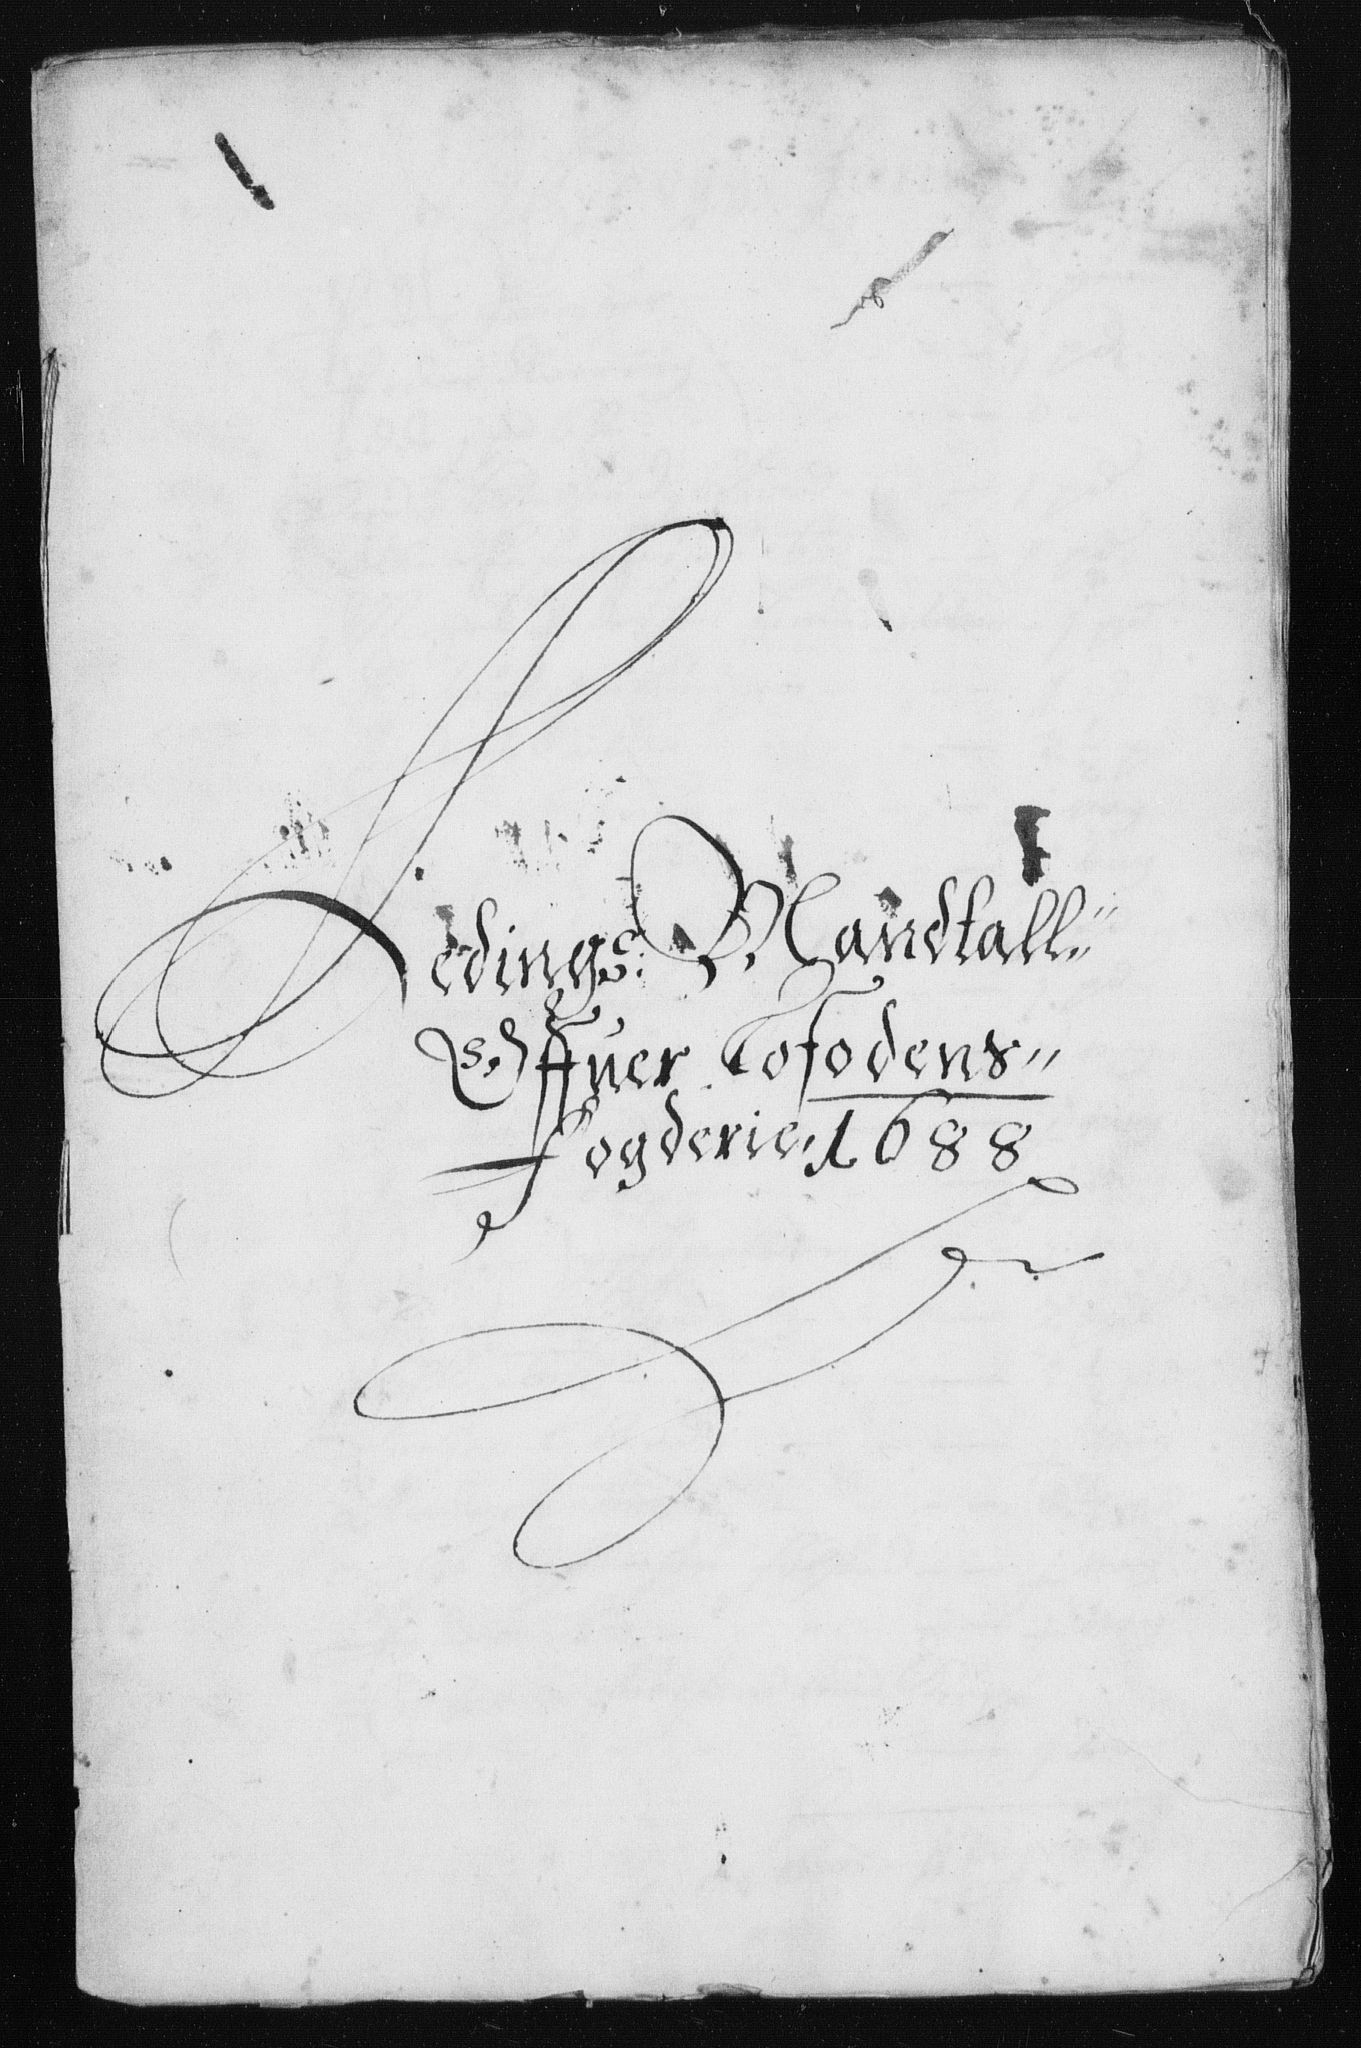 Ledings: Mandtall"
Offuer Lofodens"
Fogderie, 1688